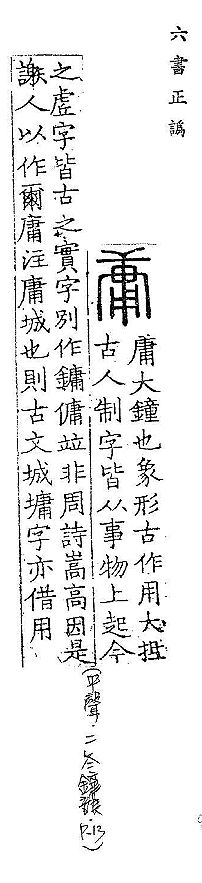 六書正譌
庸大鐘也象形古作用大抵
古人制字皆从事物上起今
之虛字皆古之實字別作鏞傭竝非周詩嵩高因是
謝人以作爾庸注庸城也則古文城墉字亦借用
(平聲.二冬鍾韻 P.13)